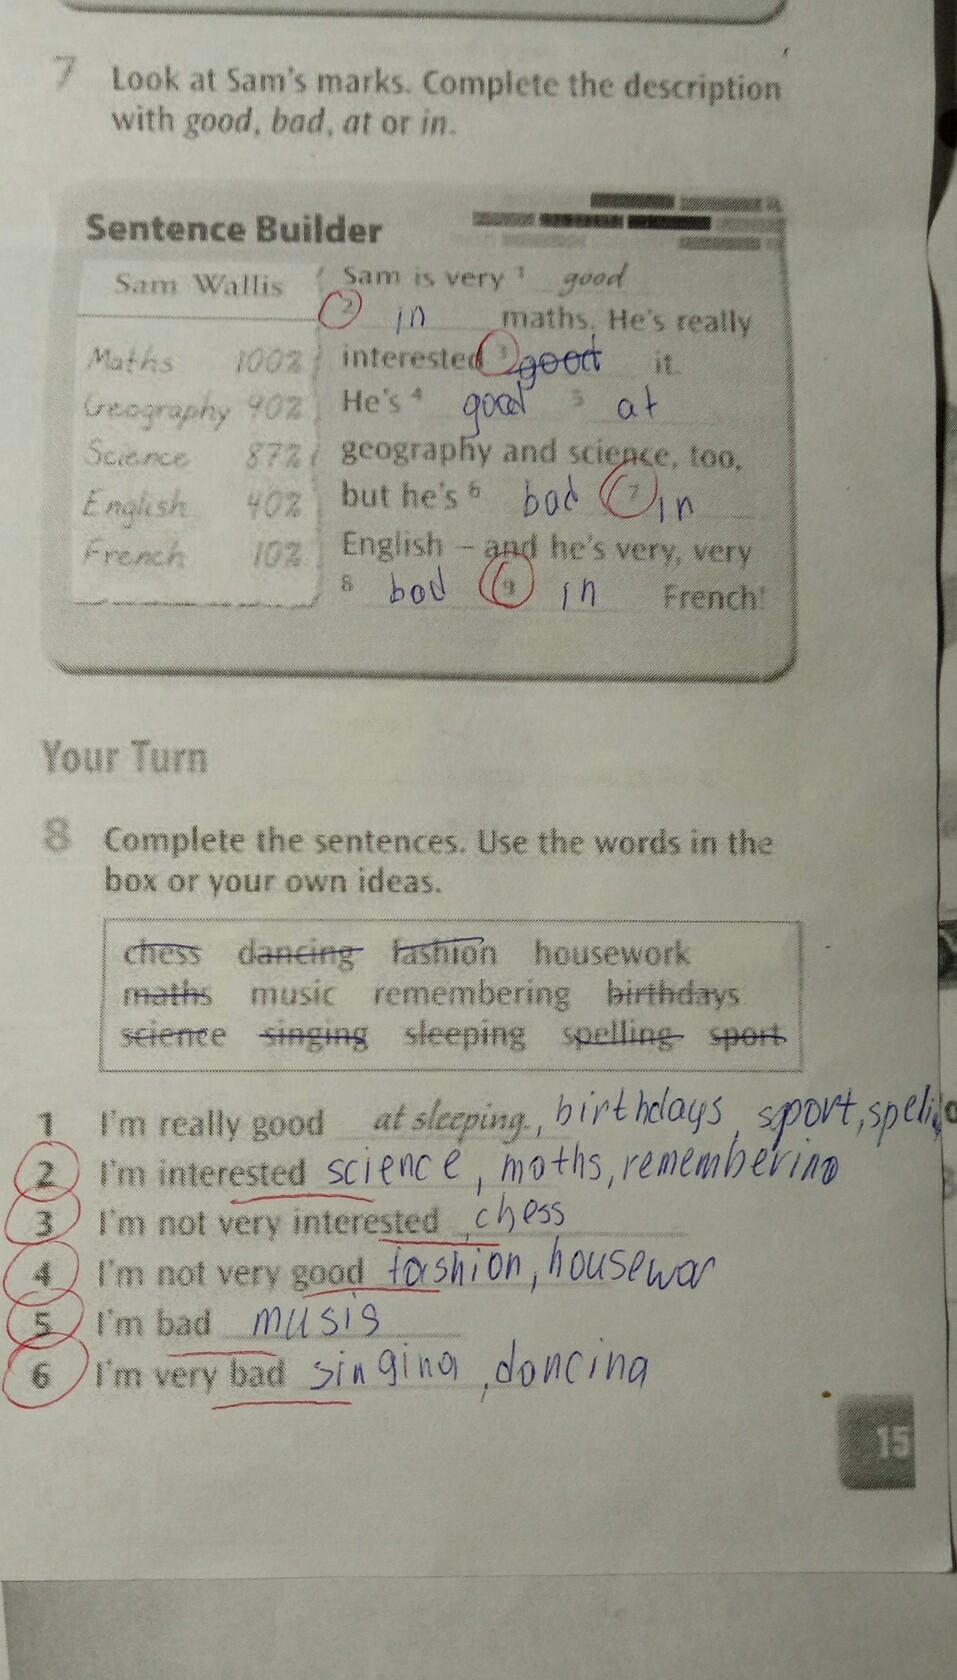 7 Look at Sam's marks. Complete the description
with good, bad, at or in.
Sentence Builder
Sam Wallis
Maths 100%
Geography 90%
Science 87%
English 40%
French 10%
Sam is very 1 good
2 in maths. He's really
interested 3 good it.
He's 4 good 5 at
geography and science, too,
but he's 6 bad 7 in
English – and he's very, very
8 bad 9 in French!
Your Turn
8 Complete the sentences. Use the words in the
box or your own ideas.
chess dancing fashion housework
maths music remembering birthdays
science singing sleeping spelling sport
1 I'm really good at sleeping., birthdays, sport,
2 I'm interested science, maths, remembering
3 I'm not very interested chess
4 I'm not very good fashion, housewor
5 I'm bad musis
6 I'm very bad singing, dancing
15